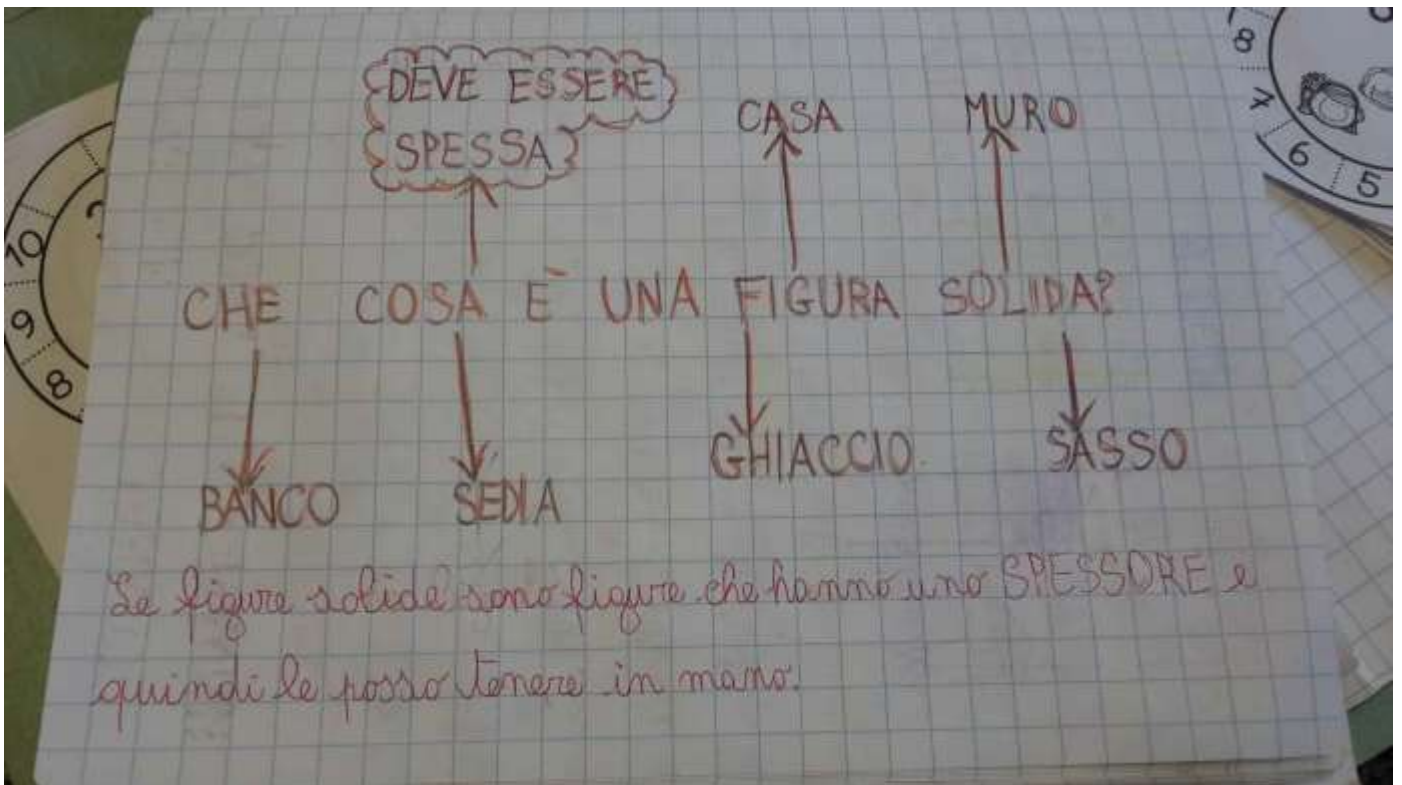 DEVE ESSERE
SPESSA
CASA MURO
CHE COSA È UNA FIGURA SOLIDA?
BANCO SEDIA GHIACCIO SASSO
Le figure solide sono figure che hanno uno SPESSORE e
quindi le posso tenere in mano.
10
9
8
8
7
6
5